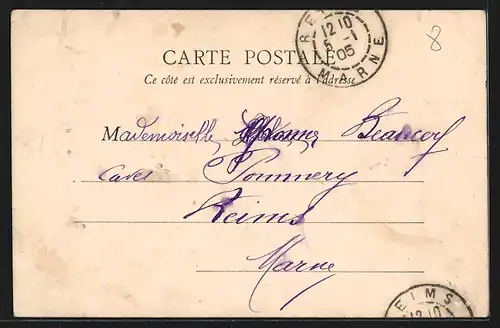 REIMS
12 10
5 -1
05
MARNE
CARTE POSTALE
Ce côté est exclusivement réservé à l'adresse
8
Mademoiselle
caves Pommery
Reims
Marne
EIMS
12 10